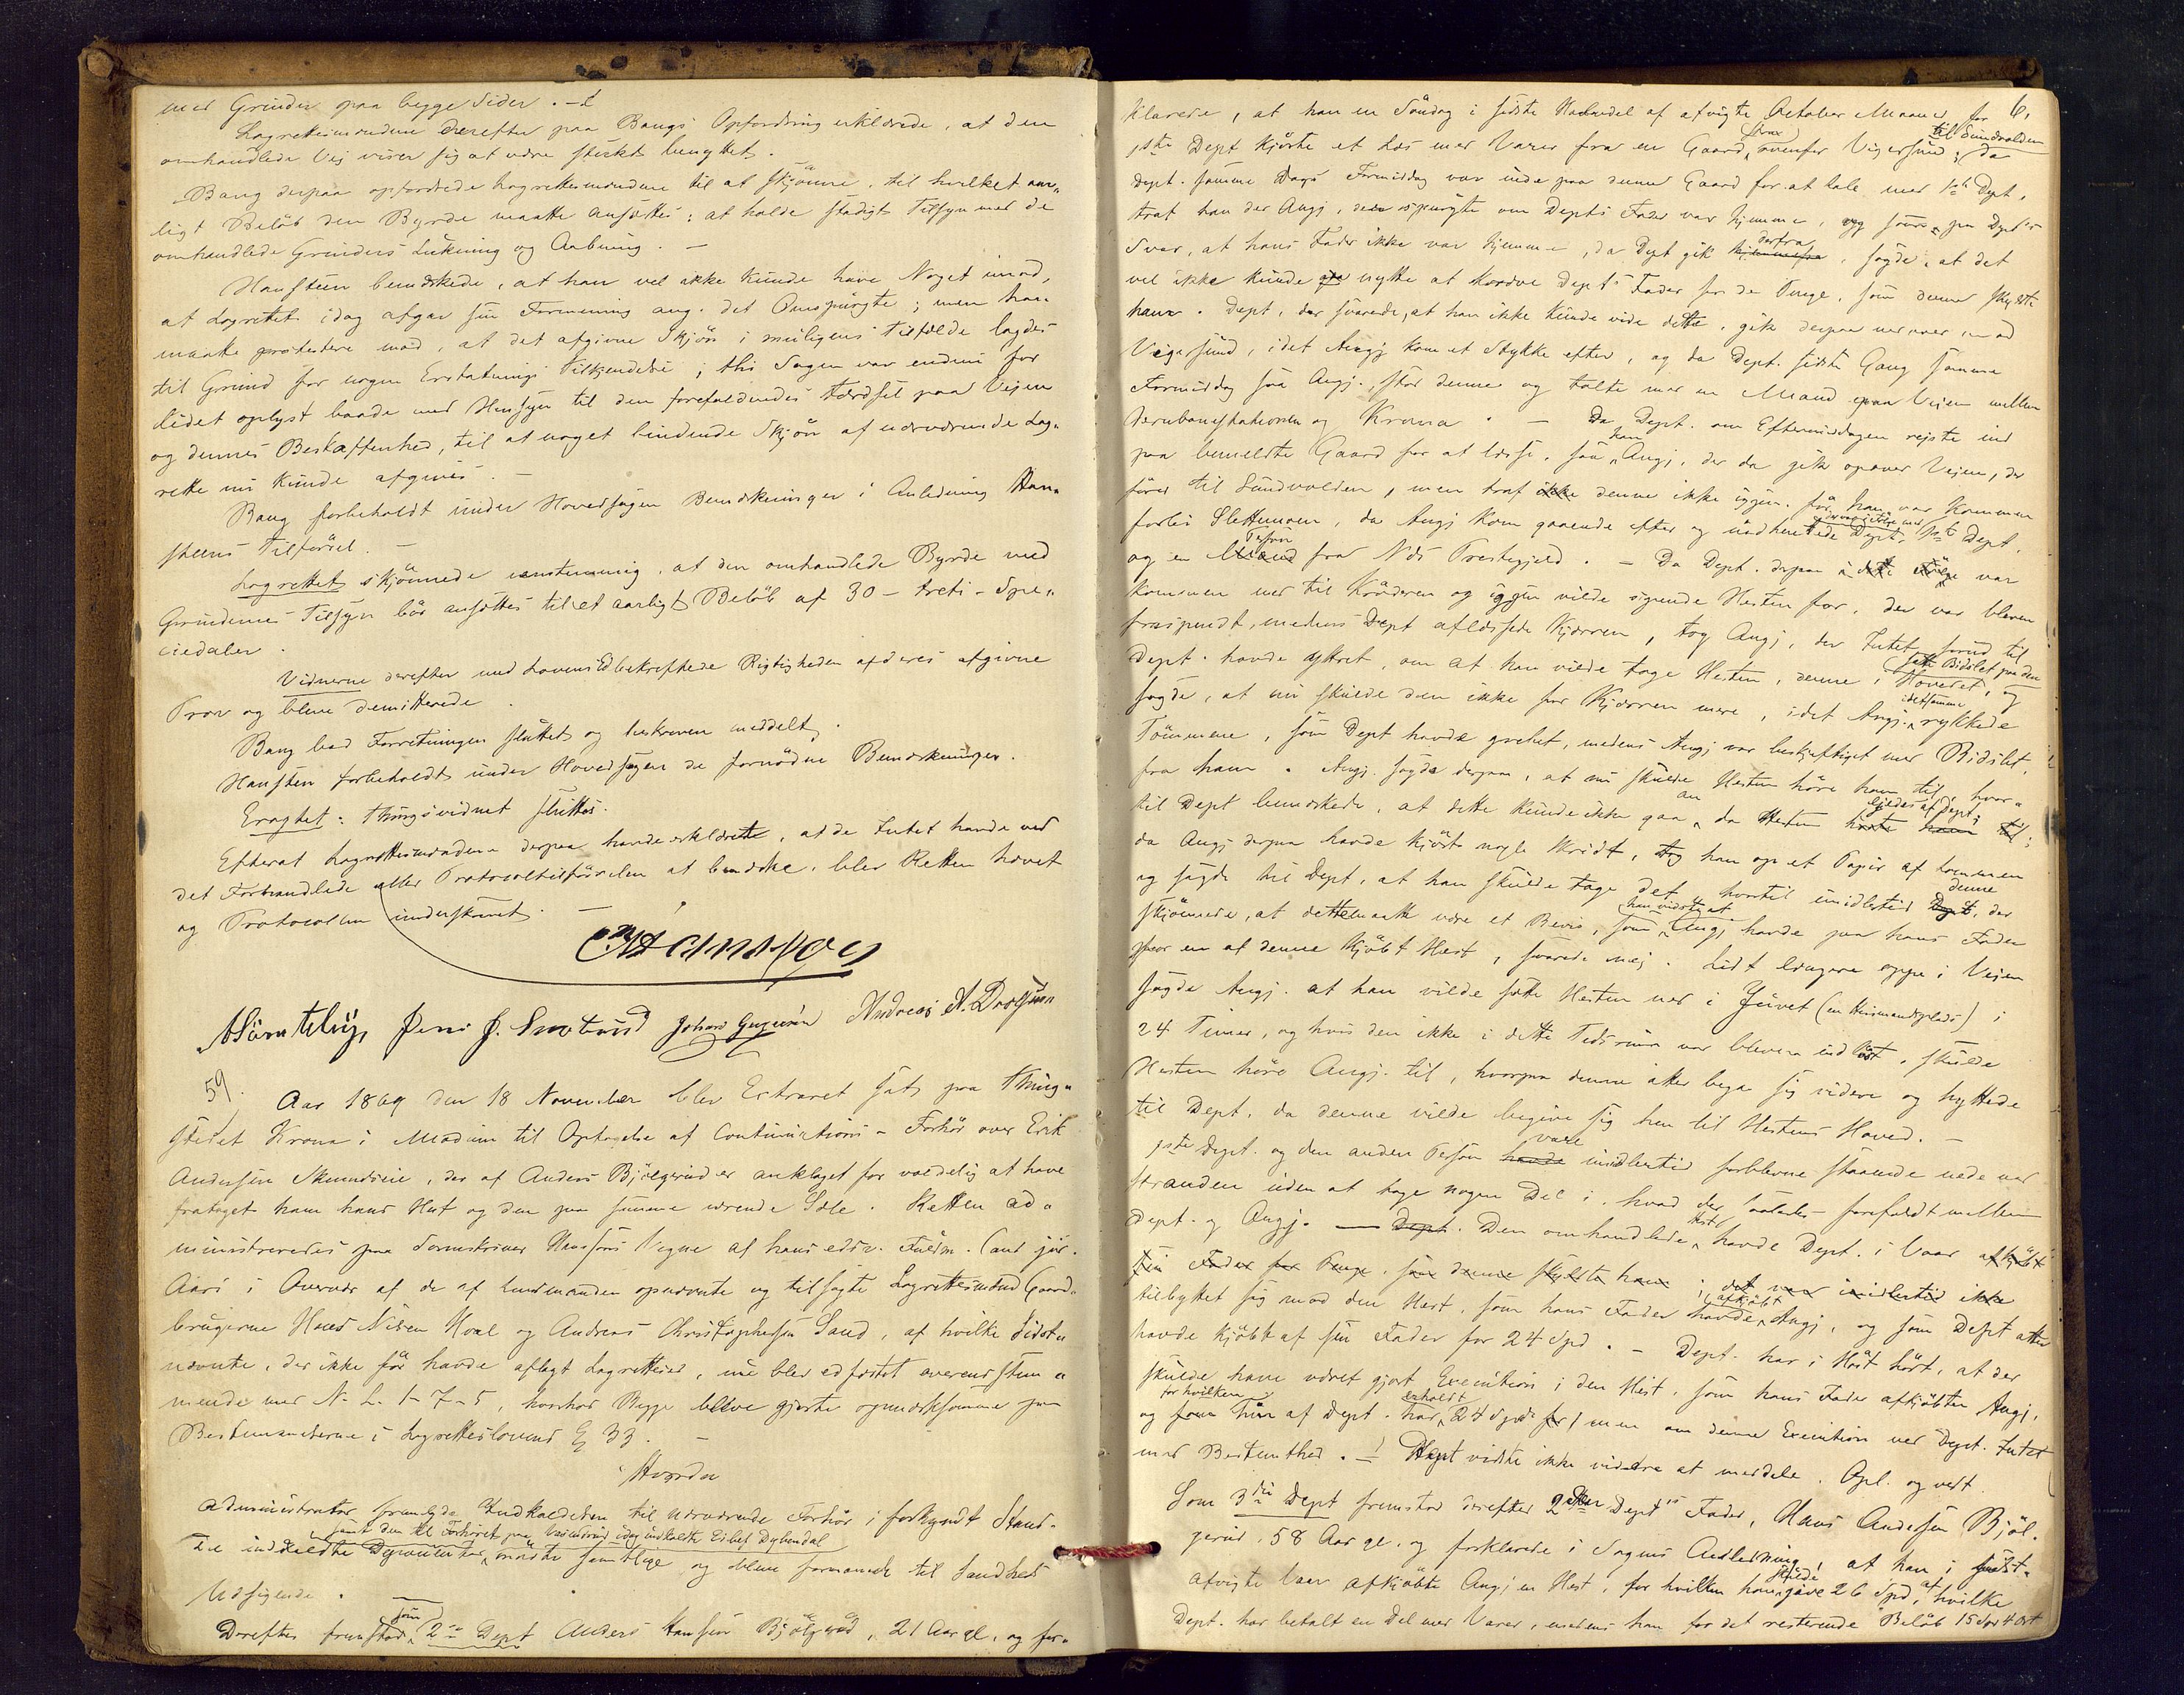 med Grinder paa begge Sider. –
Lagrettesmændene derefter paa Bangs Opfordring erklærede, at den
omhandlede Vej viser sig at være stærkt benyttet.
Bang derpaa opfordrede Lagrettesmændene til at skjønne, til hvilket aar-
ligt Beløb den Byrde maatte ansættes: at holde stadigt Tilsyn med de
omhandlede Grinders Lukning og Aabning. –
Hansteen bemærkede, at han vel ikke kunde have Noget imod,
at Lagrettet idag afgav sin Formening ang. det Omspurgte; men han
maatte protestere mod, at det afgivne Skjøn i muligens Tilfælde lagdes
til Grund for nogen Erstatnings Tilkjendelse; thi Sagen var endnu for
lidet oplyst baade med Hensyn til den forefaldendes Færdsel paa Vejen
og dennes Beskaffenhed, til at noget bindende Skjøn af nærværende Lag-
rette nu kunde afgives. –
Bang forbeholdt under Hovedsagen Bemærkninger i Anledning Han-
steens Tilførsel. –
Lagrettet skjønnede eenstemmig, at den omhandlede Byrde med
Grindernes Tilsyn bør ansættes til et aarligt Beløb af 30 – treti – Spe-
ciedaler.
Vidnerne derefter med Lovens Ed bekræftede Rigtigheden af deres afgivne
Prov og bleve demitterede.
Bang bad Forretningen sluttet og beskreven meddelt.
Hansteen forbeholdt under Hovedsagen de fornødne Bemærkninger.
Eragtet: Thingsvidnet sluttes.
Efterat Lagrettesmændene derpaa havde erklæret, at de Intet havde ved
det Forhandlede eller Protocoltilførselen at bemærke, blev Retten hævet
og Protocollen underskrevet. –
Hansson
Jens J. Andreas A.
59. Aar 1869 den 18 November blev Extraret sat paa Thing-
stedet Krona i Modum til Optagelse af Continuations-Forhør over Erik
Andersen Skinnesmoen, der af Anders Bjølgerud er anklaget for voldelig at have
frataget ham hans Hest og den paa samme værende Sæle. Retten ad-
ministreredes paa Sorenskriver Hanssons Vegne af hans edsv. Fuldm. Cand. jur.
Aars i Overvær af de af Lensmanden opnævnte og tilsagte Lagrettesmænd Gaard-
brugerne Hans Nilsen Hoel og Andreas Christophersen Sand, af hvilke Sidst-
nævnte, der ikke før havde aflagt Lagretteed, nu blev edfæstet overensstem-
mende med N. L. 1–7–5, hvorhos Begge bleve gjorte opmærksomme paa
Bestemmelserne i Lagretteslovens § 33. –
Hvorda
Administrator fremlagde Indkaldelsen til nærværende Forhør i forkyndt Stand.
samt den til Forhøret paa idag indkaldte Dybendal
De indkaldte Deponenter mødte samtlige og bleve formanede til Sandheds
Udsigende. –
Derefter fremstod som 2den Dept Anders Hansen Bjølgerud, 21 Aar gl. og for-
6.
klarede, at han en Søndag i sidste Halvdel af afvigte October Maaned for
1ste Dept kjørte et Læs med Varer fra en Gaard strax ovenfor Vigersund til Sundvolden; da
Dept. samme Dags Formiddag var inde paa denne Gaard for at tale med 1ste Dept,
traf han der Angj., der spurgte om Depts Fader var hjemme, og som, paa Dept's
Svar, at hans Fader ikke var hjemme, da Dept gik derfra, sagde, at det
vel ikke kunde nytte at kræve Dept's Fader for de Penge, som denne skyldte
ham. Dept, der svarede, at han ikke kunde vide dette, gik derpaa nedover mod
Vigersund, idet Angj kom et Stykke efter, og da Dept. sidste Gang samme
Formiddag saa Angj., stod denne og talte med en Mand paa Veien mellem
Jernbanestationen og Krona. – Da Dept. om Eftermiddagen rejste ind
paa bemeldte Gaard for at læsse, saa han Angj., der da gik opover Vejen, der
fører til Sundvolden, men traf denne ikke igjen, før han var kommen
forbi Slettemoen, da Angj kom gaaende efter og indhentede Dept, der var i Følge med 1ste Dept,
og en Person fra Nds Præstegjeld. – Da Dept. derpaa var
kommen ned til Krøderen og igjen vilde spænde Hesten for, der var bleven
fraspændt, medens Dept aflæssede Kjærren, tog Angj, der Intet forud til
Dept. havde ytret, om at han vilde tage Hesten, denne i Hovedet, satte Bidslet paa den og
sagde, at nu skulde den ikke for Kjærren mere, idet Angj. idetsamme rykkede
Tømmene, som Dept havde grebet, medens Angj var beskjæftiget med Bidslet,
fra ham. Angj. sagde derpaa, at nu skulde Hesten høre ham til, hvor-
til Dept bemærkede, at dette kunde ikke gaa an, da Hesten eiedes af Dept;
da Angj derpaa havde kjørt nogle Skridt, tog han op et Papir af Lommen
og sagde til Dept, at han skulde tage det, hvortil imidlertid denne, der
skjønnede, at dette maatte være et Bevis, som han vidste at Angj havde paa hans Fader
for en af denne kjøbt Hest, svarede nej. Lidt længere oppe i Veien
sagde Angj. at han vilde sætte Hesten ned i Juvet (en Husmandsplads) i
24 Timer, og hvis den ikke i dette Tidsrum var bleven indløst, skulde
Hesten høre Angj. til, hvorpaa denne atter begav sig videre og hyttede
til Dept. da denne vilde begive sig hen til Hestens Hoved. –
1ste Dept. og den anden Person vare imidlertid forblevne staaende nede ved
Stranden uden at tage nogen Del i, hvad der saaledes forefaldt mellem
Dept. og Angj. – Den omhandlede Hest havde Dept. i Vaar
sin Fader for Penge, som denne skyldte ham; det var imidlertid ikke
tilbyttet sig mod den Hest, som hans Fader havde afkjøbt Angj, og som Dept atter
havde kjøbt af sin Fader for 24 Spd. – Dept. har i Høst hørt, at der
skulde have været gjort Execution i den Hest, som hans Fader afkjøbte Angj,
og for hvilken hin af Dept. har erholdt 24 Spd, men om denne Execution ved Dept. Intet
med Bestemthed. – Dept vidste ikke videre at meddele. Opl. og vedt.
Som 3die Dept fremstod derefter 2den Dept's Fader, Hans Andersen Bjøl-
gerud, 58 Aar gl. og forklarede i Sagens Anledning, at han i sidst-
afvigte Vaar afkjøbte Angj en Hest, for hvilken han skulde give 26 Spd, af hvilke
Dept. har betalt en Del med Varer, medens han for det resterende Beløb 15 Spd 4 Ort